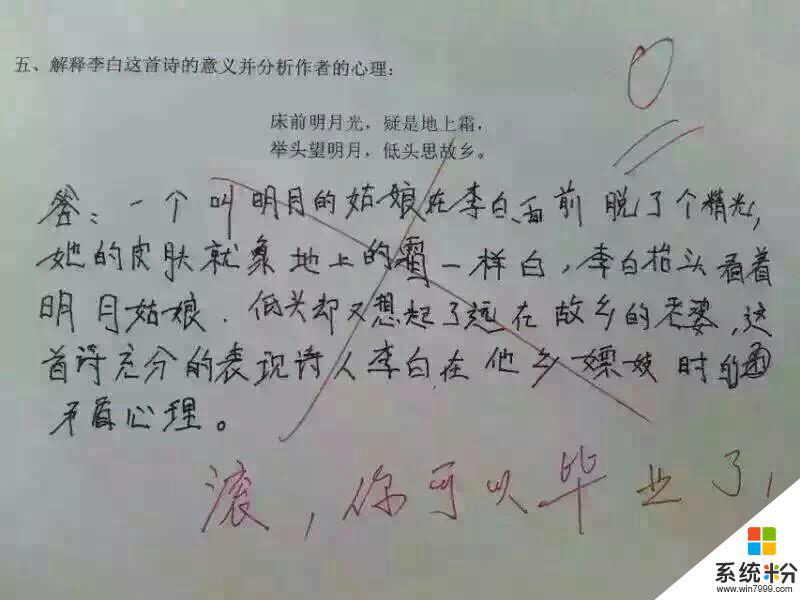 五、解释李白这首诗的意义并分析作者的心理：
床前明月光，疑是地上霜，
举头望明月，低头思故乡。
答：一个叫明月的姑娘在李白面前脱了个精光，
她的皮肤就象地上的霜一样白，李白抬头看着
明月姑娘．低头却又想起了远在故乡的老婆，这
首诗充分的表现诗人李白在他乡嫖妓时的
矛盾心理。
滚，你可以毕业了，
系统粉
www.win7999.com